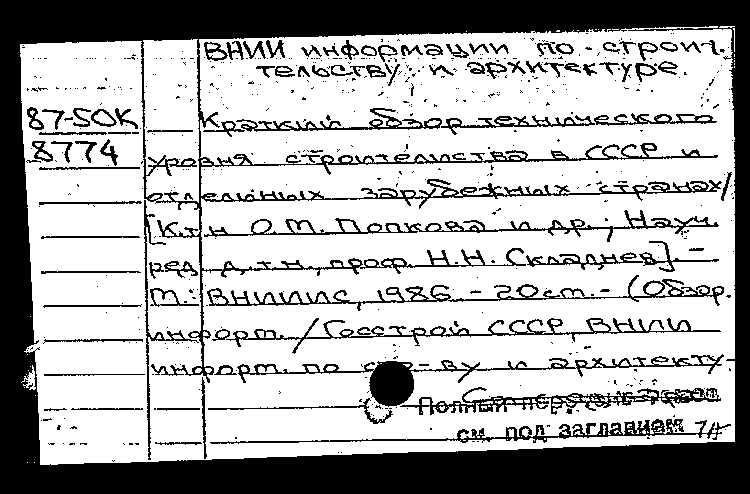 ВНИИ информации по строи-
тельству и архитектуре.
87-50К
8774
Краткий обзор технического
уровня строительства в СССР и
отдельных зарубежных странах/
[К.т.н О.М. Попкова и др.; Науч.
ред. д.т.н., проф. Н.Н. Складнев]. –
М.: ВНИИИС, 1986. – 20 см. – (Обзор.
информ. / Госстрой СССР, ВНИИ
информ. по стр-ву и архитекту-
Полный
см. под заглавием 7А